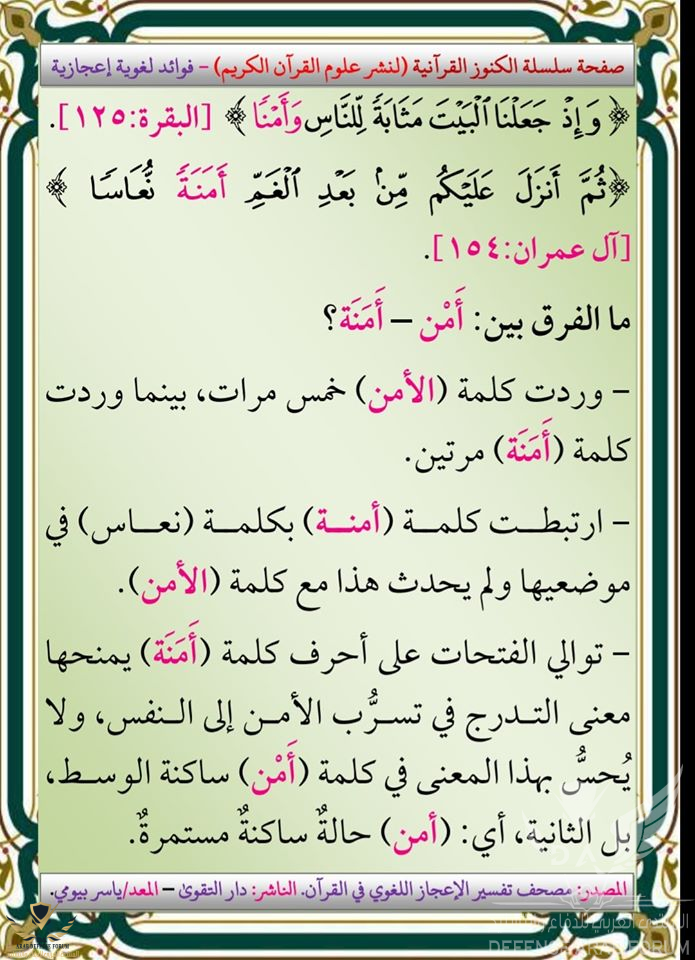 صفحة سلسلة الكنوز القرآنية (لنشر علوم القرآن الكريم) - فوائد لغوية إعجازية
﴿ وَإِذْ جَعَلْنَا ٱلْبَيْتَ مَثَابَةً لِّلنَّاسِ وَأَمْنًا ﴾ [البقرة:١٢٥].
﴿ثُمَّ أَنزَلَ عَلَيْكُم مِّنۢ بَعْدِ ٱلْغَمِّ أَمَنَةً نُّعَاسًا ﴾
[آل عمران:١٥٤].
ما الفرق بين: أَمْن – أَمَنَة؟
- وردت كلمة (الأمن) خمس مرات، بينما وردت
كلمة (أَمَنَة) مرتين.
- ارتبطــت كلمــة (أمنــة) بكلمــة (نعــاس) في
موضعيها ولم يحدث هذا مع كلمة (الأمن).
- توالي الفتحات على أحرف كلمة (أَمَنَة) يمنحها
معنى التدرج في تسرُّب الأمن إلى النفس، ولا
يُحسُّ بهذا المعنى في كلمة (أَمْن) ساكنة الوسط،
بل الثانية، أي: (أمن) حالةٌ ساكنةٌ مستمرةٌ.
المصدر: مصحف تفسير الإعجاز اللغوي في القرآن. الناشر: دار التقوى – المعد/ياسر بيومي.
المنتدى العربي للدفاع والتسليح
DEFENSE ARAB FORUM
ARAB DEFENSE FORUM